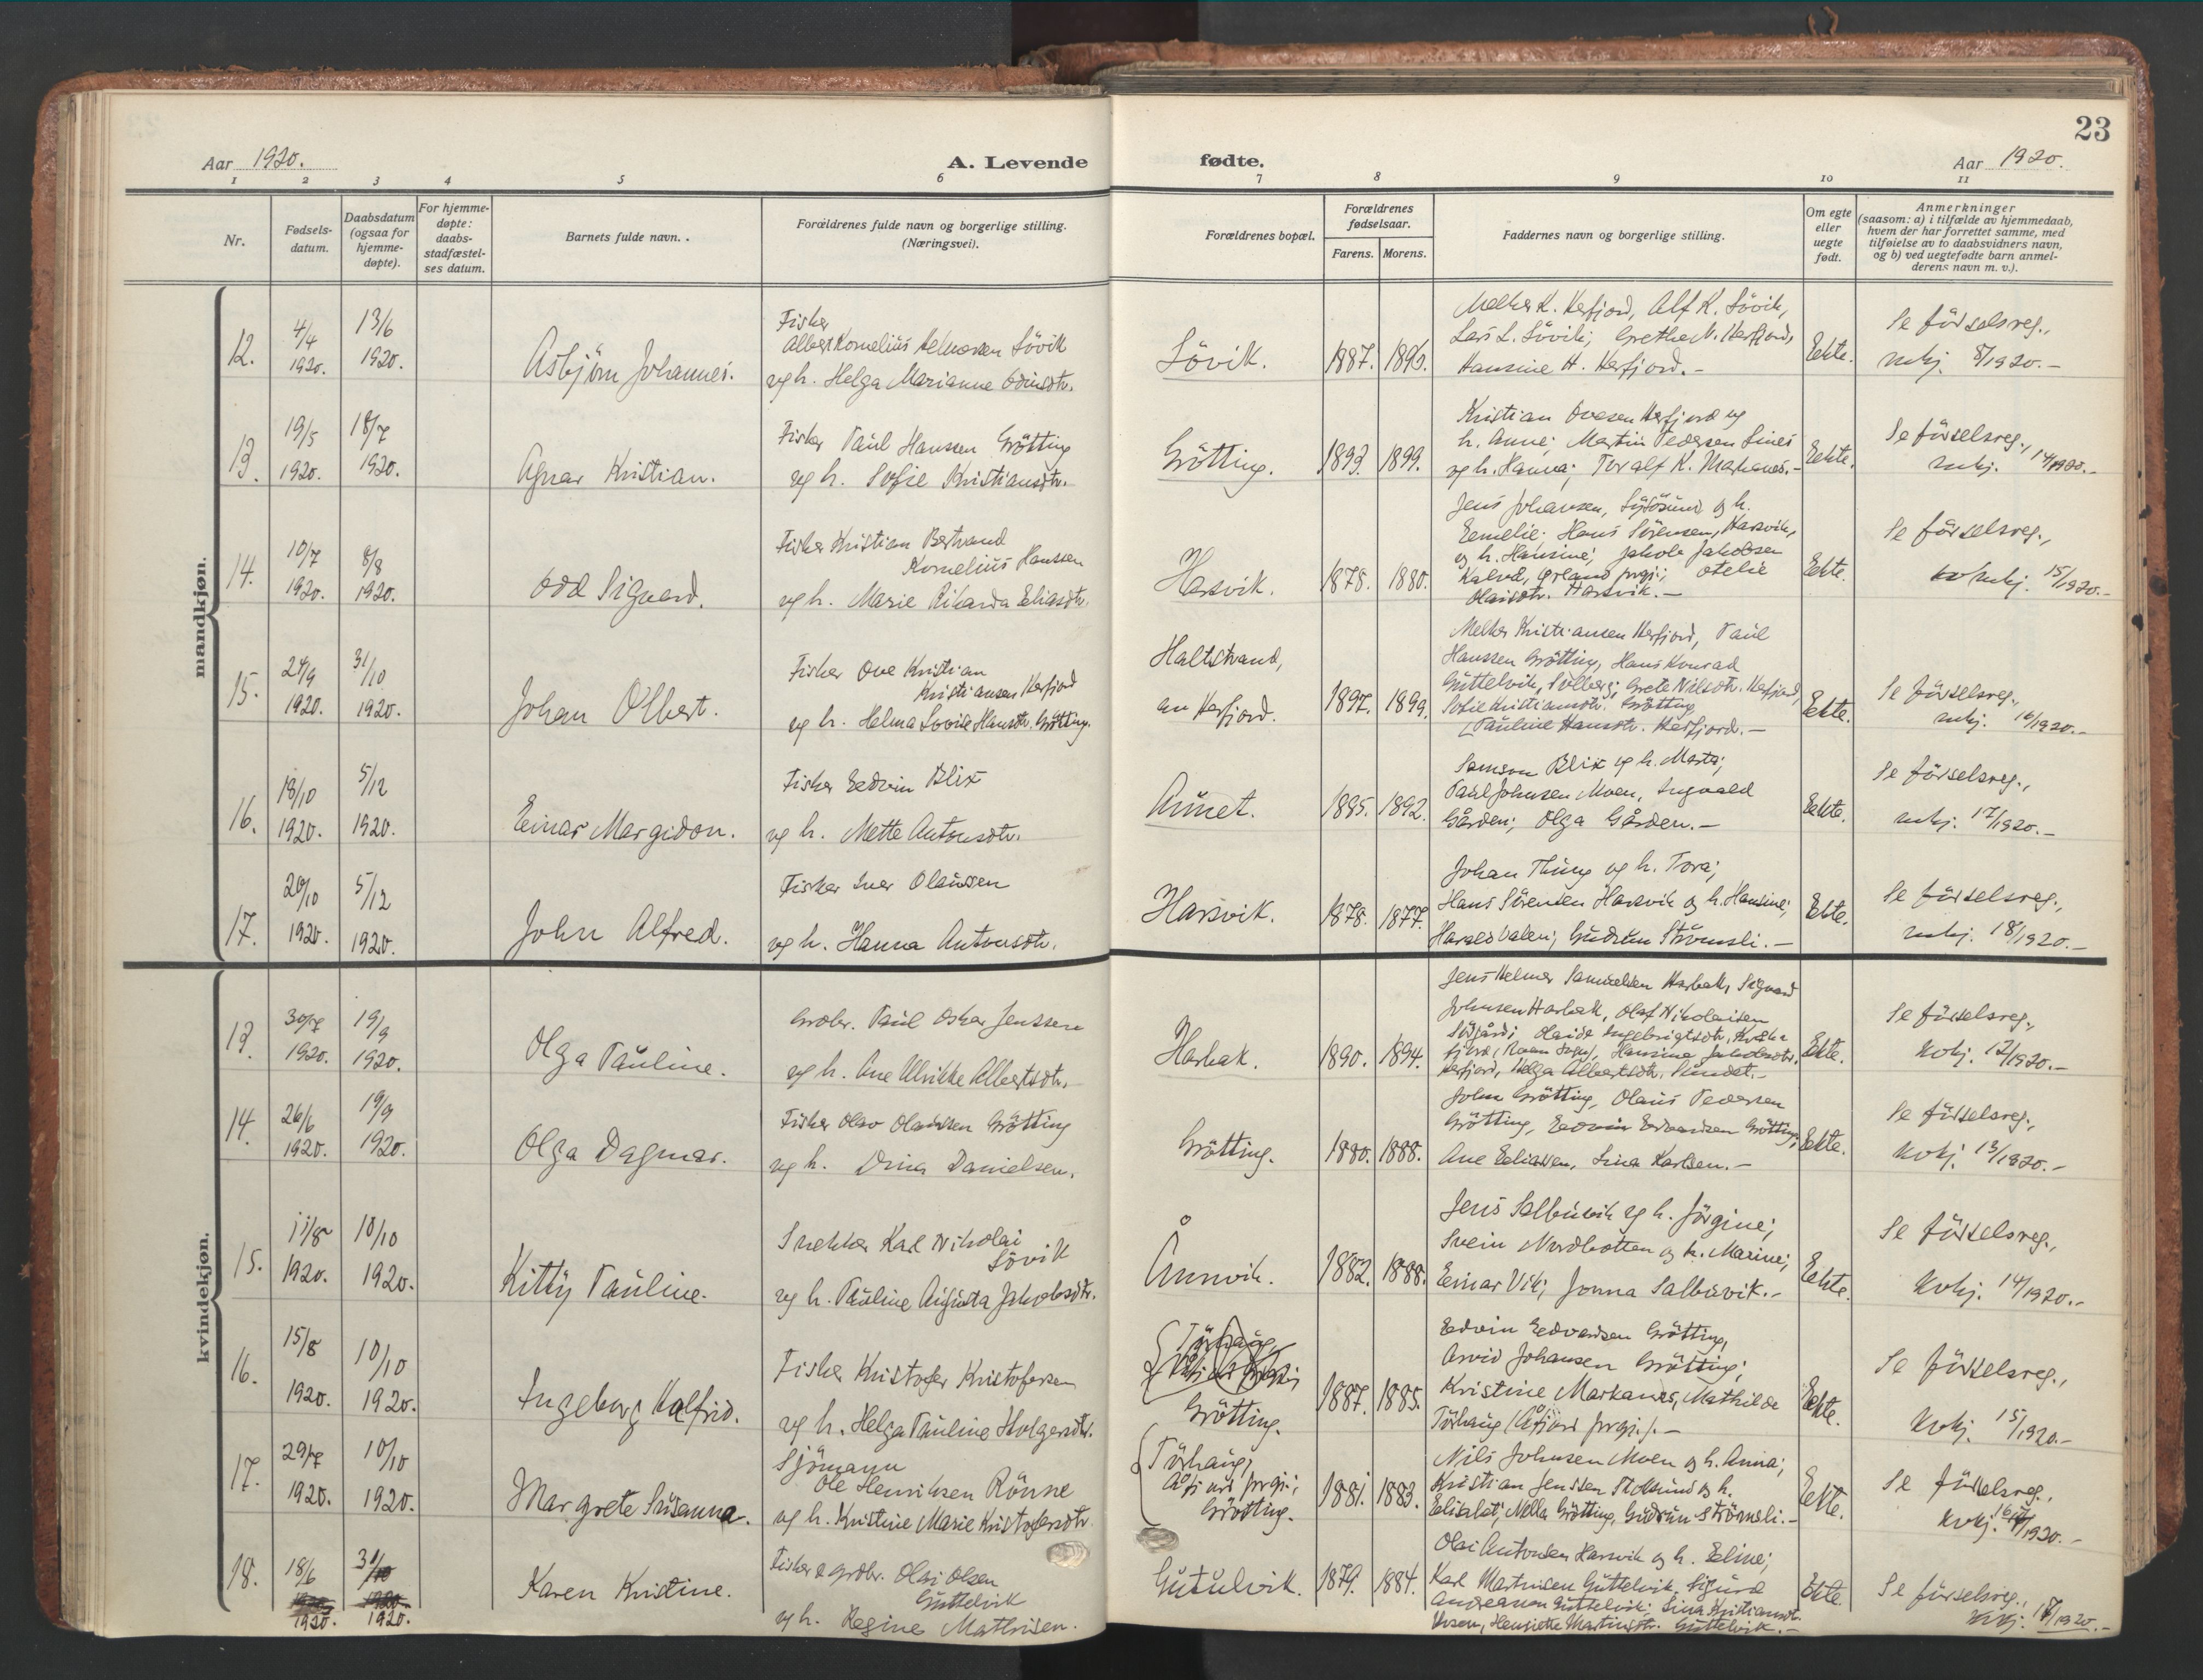 23
Aar 1920.
A. Levende
fødte.
Aar 1920.
1 2 3 4 5 6 7 8 9 10 11
Nr.
Fødsels-
datum.
Daabsdatum
(ogsaa for
hjemme-
døpte).
For hjemme-
døpte:
daabs-
stadfæstel-
ses datum.
Barnets fulde navn.
Forældrenes fulde navn og borgerlige stilling.
(Næringsvei).
Forældrenes bopæl.
Forældrenes
fødselsaar.
Farens. Morens.
Faddernes navn og borgerlige stilling.
Om egte
eller
uegte
født.
Anmerkninger
(saasom: a) i tilfælde av hjemmedaab,
hvem der har forrettet samme, med
tilføielse av to daabsvidners navn,
og b) ved uegtefødte barn anmel-
derens navn m. v.).
mandkjøn.
12.
4/4
1920.
13/6
1920.
Asbjörn Johannes.
Fisker
Albert Kornelius Sövik
og h. Helga Marianne
Sövik.
1887.
Melker K. Herfjord, Alf K. Sövik,
Lars L. Sövik; Grethe N. Herfjord,
Hansine H. Herfjord.-
Ekte.
Se födselsreg.,
mkj. 8/1920.-
13.
19/5
1920.
18/7
1920.
Agnar Kristian.
Fisker Paul Hansen Grötting
og h. Sofie Kristiansdtr.
Grötting.
1893. 1899.
Kristian Ovesen Herfjord og
h. Anne; Martin Pedersen Sines
og h. Hanna; Toralf K. Markanes.-
Ekte.
Se födselsreg.,
mkj. 14/1920.-
14.
10/7
1920.
8/8
1920.
Odd Sigvard.
Fisker Kristian Bertrand
Kornelius Hanssen
og h. Marie Rikarda Eliasdtr.
Harsvik.
1878. 1880.
Jens Johansen, og h.
Emelie; Hans Sörensen, Harsvik,
og h. Hansine; Jakob Jakobsen
Kalvd, Ørland prgj.; Otelie
Olaisdtr. Harsvik.-
Ekte.
Se födselsreg.,
mkj. 15/1920.-
15.
24/9
1920.
31/10
1920.
Johan Olbert.
Fisker Ove Kristian
Kristiansen Herfjord
og h. Helma Lovise Hansdtr. Grötting.
Haltstrand,
an Herfjord.
1897. 1899.
Melker Kristiansen Herfjord, Paul
Hanssen Grötting, Hans Konrad
Güttelvik, Solberg; Grete Nilsdtr. Herfjord,
Sofie Kristiansdtr. Grötting
Pauline Hansdtr. Herfjord.-
Ekte.
Se födselsreg.,
mkj. 16/1920.-
16.
18/10
1920.
5/12
1920.
Einar Margidon.
Fisker Edvin Blix
og h. Mette Antonsdtr.
Aünet.
1885. 1892.
Samson Blix og h. Marta;
Paul Johnsen Moen, Ingvald
Gården; Olga Gården.-
Ekte.
Se födselsreg.,
mkj. 17/1920.-
17.
20/10
1920.
5/12
1920.
John Alfred.
Fisker Iver Olaüsen
og h. Hanna Antonsdtr.
Harsvik.
1878. 1877.
Johan Thüng og h. Tora;
Hans Sörensen Harsvik og h. Hansine;
Harald Dalen; Güdrün Strömsli.-
Ekte.
Se födselsreg.,
mkj. 18/1920.-
kvindekjøn.
13.
30/7
1920.
19/9
1920.
Olga Paüline.
Grdbr. Paul Oskar Jenssen
og h. Ane Ulrikke Albertsdtr.
Harbak.
1890. 1894.
Jens Helmer Samüelsen Harbak, Sigvard
Johnsen Harbak, Olaf Nikolaisen
Ingebrigtsdtr.
Hansine Jakobsdtr.
Herfjord, Helga Albertsdtr. Sündet.-
Ekte.
Se födselsreg.,
kvkj. 12/1920.-
14.
26/6
1920.
19/9
1920.
Olga Dagmar.
Fisker Olav Olaüssen Grötting
og h. Drina Danielsen.
Grötting.
1880. 1888.
John Grötting, Olaüs Pedersen
Grötting, Edvin Edvardsen Grötting;
Ane Eliassen, Lina Karlsen.-
Ekte.
Se födselsreg.,
kvkj. 13/1920.-
15.
11/8
1920.
10/10
1920.
Kitty Paüline.
Snekker Karl Nikolai
Sövik
og h. Paüline Aügüsta Jakobsdtr.
Ånnvik.
1882. 1888.
Jens Salbüvik og h. Jörgine;
Svein Nordbotten og h. Marine;
Einar Vik; Jonna Salbüvik.-
Ekte.
Se födselsreg.,
kvkj. 14/1920.-
16.
15/8
1920.
10/10
1920.
Ingeborg Halfrid.
Fisker Kristofer Kristofersen
og h. Helga Paüline Holgersdtr.
Grötting.
1887. 1885.
Edvin Edvardsen Grötting,
Arvid Johansen Grötting;
Kristine Markanes, Mathilde
Törhaug (Åfjord prgj.).-
Ekte.
Se födselsreg.,
kvkj. 15/1920.-
17.
29/7
1920.
10/10
1920.
Margrete Süsanna.
Sjömann
Ole Henriksen Rönne
og h. Kristine Marie Kristofersdtr.
Törhaug,
Åfjord prgj.;
Grötting.
1881. 1883.
Nils Johnsen Moen og h. Anna;
Kristian Jenssen Stoksünd og h.
Elisabet; Mella Grötting, Güdrün Strömsli.-
Ekte.
Se födselsreg.,
kvkj. 16/1920.-
18.
18/6
1920.
31/10
1920.
Karen Kristine.
Fisker & grdbr. Olai Olsen
Güttelvik
og h. Regine Mathisen.
Gütülvik.
1879. 1884.
Olai Antonsen Harsvik og h. Eline;
Karl Martinsen Güttelvik, Sigürd
Andreassen Güttelvik; Lina Kristiansdtr.
Henriette Martinsdtr. Güttelvik.-
Ekte.
Se födselsreg.,
kvkj. 17/1920.-